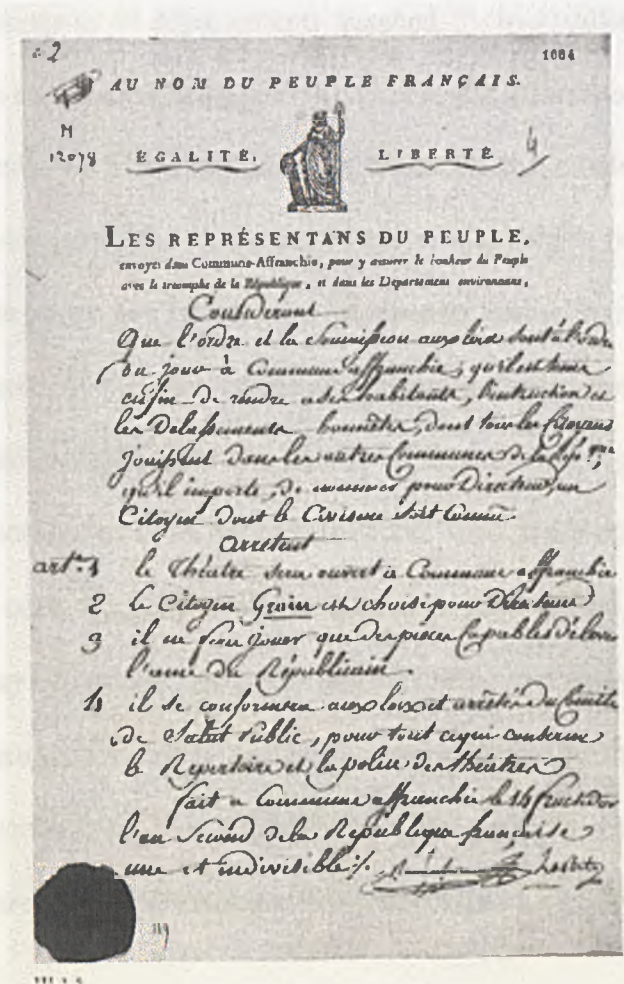 2
1664
AU NOM DU PEUPLE FRANÇAIS.
M
12078
4
ÉGALITÉ, LIBERTÉ
LES REPRÉSENTANS DU PEUPLE,
envoyés dans Commune-Affranchie, pour y assurer le bonheur du Peuple
avec le triomphe de la République, et dans les Départemens environnans,
Considerant
Que l'ordre et la soumission aux loix sont à l'ordre
du jour à Commune affranchie; qu'il est tems
enfin de rendre a ses habitants, l'instruction et
les Délassements honnêtes, dont tous les Citoyens
jouissent dans les autres Communes de la Rép.que,
qu'il importe, de nommer pour Directeur, un
Citoyen dont le Civisme soit Connu.
arrêtent
art.e 1 le Théatre sera ouvert à Commune affranchie
2 le Citoyen est choisi pour Directeur
3 il ne fera jouer que des pieces Capables d'élever
l'ame du Républicain.
4 il se conformera aux loix et arrêtés du Comité
de Salut Public, pour tout ce qui concerne
le Repertoire et la police des théatres
fait a Commune affranchie le 14 fructidor
l'an Second de la République française
une et indivisible
119